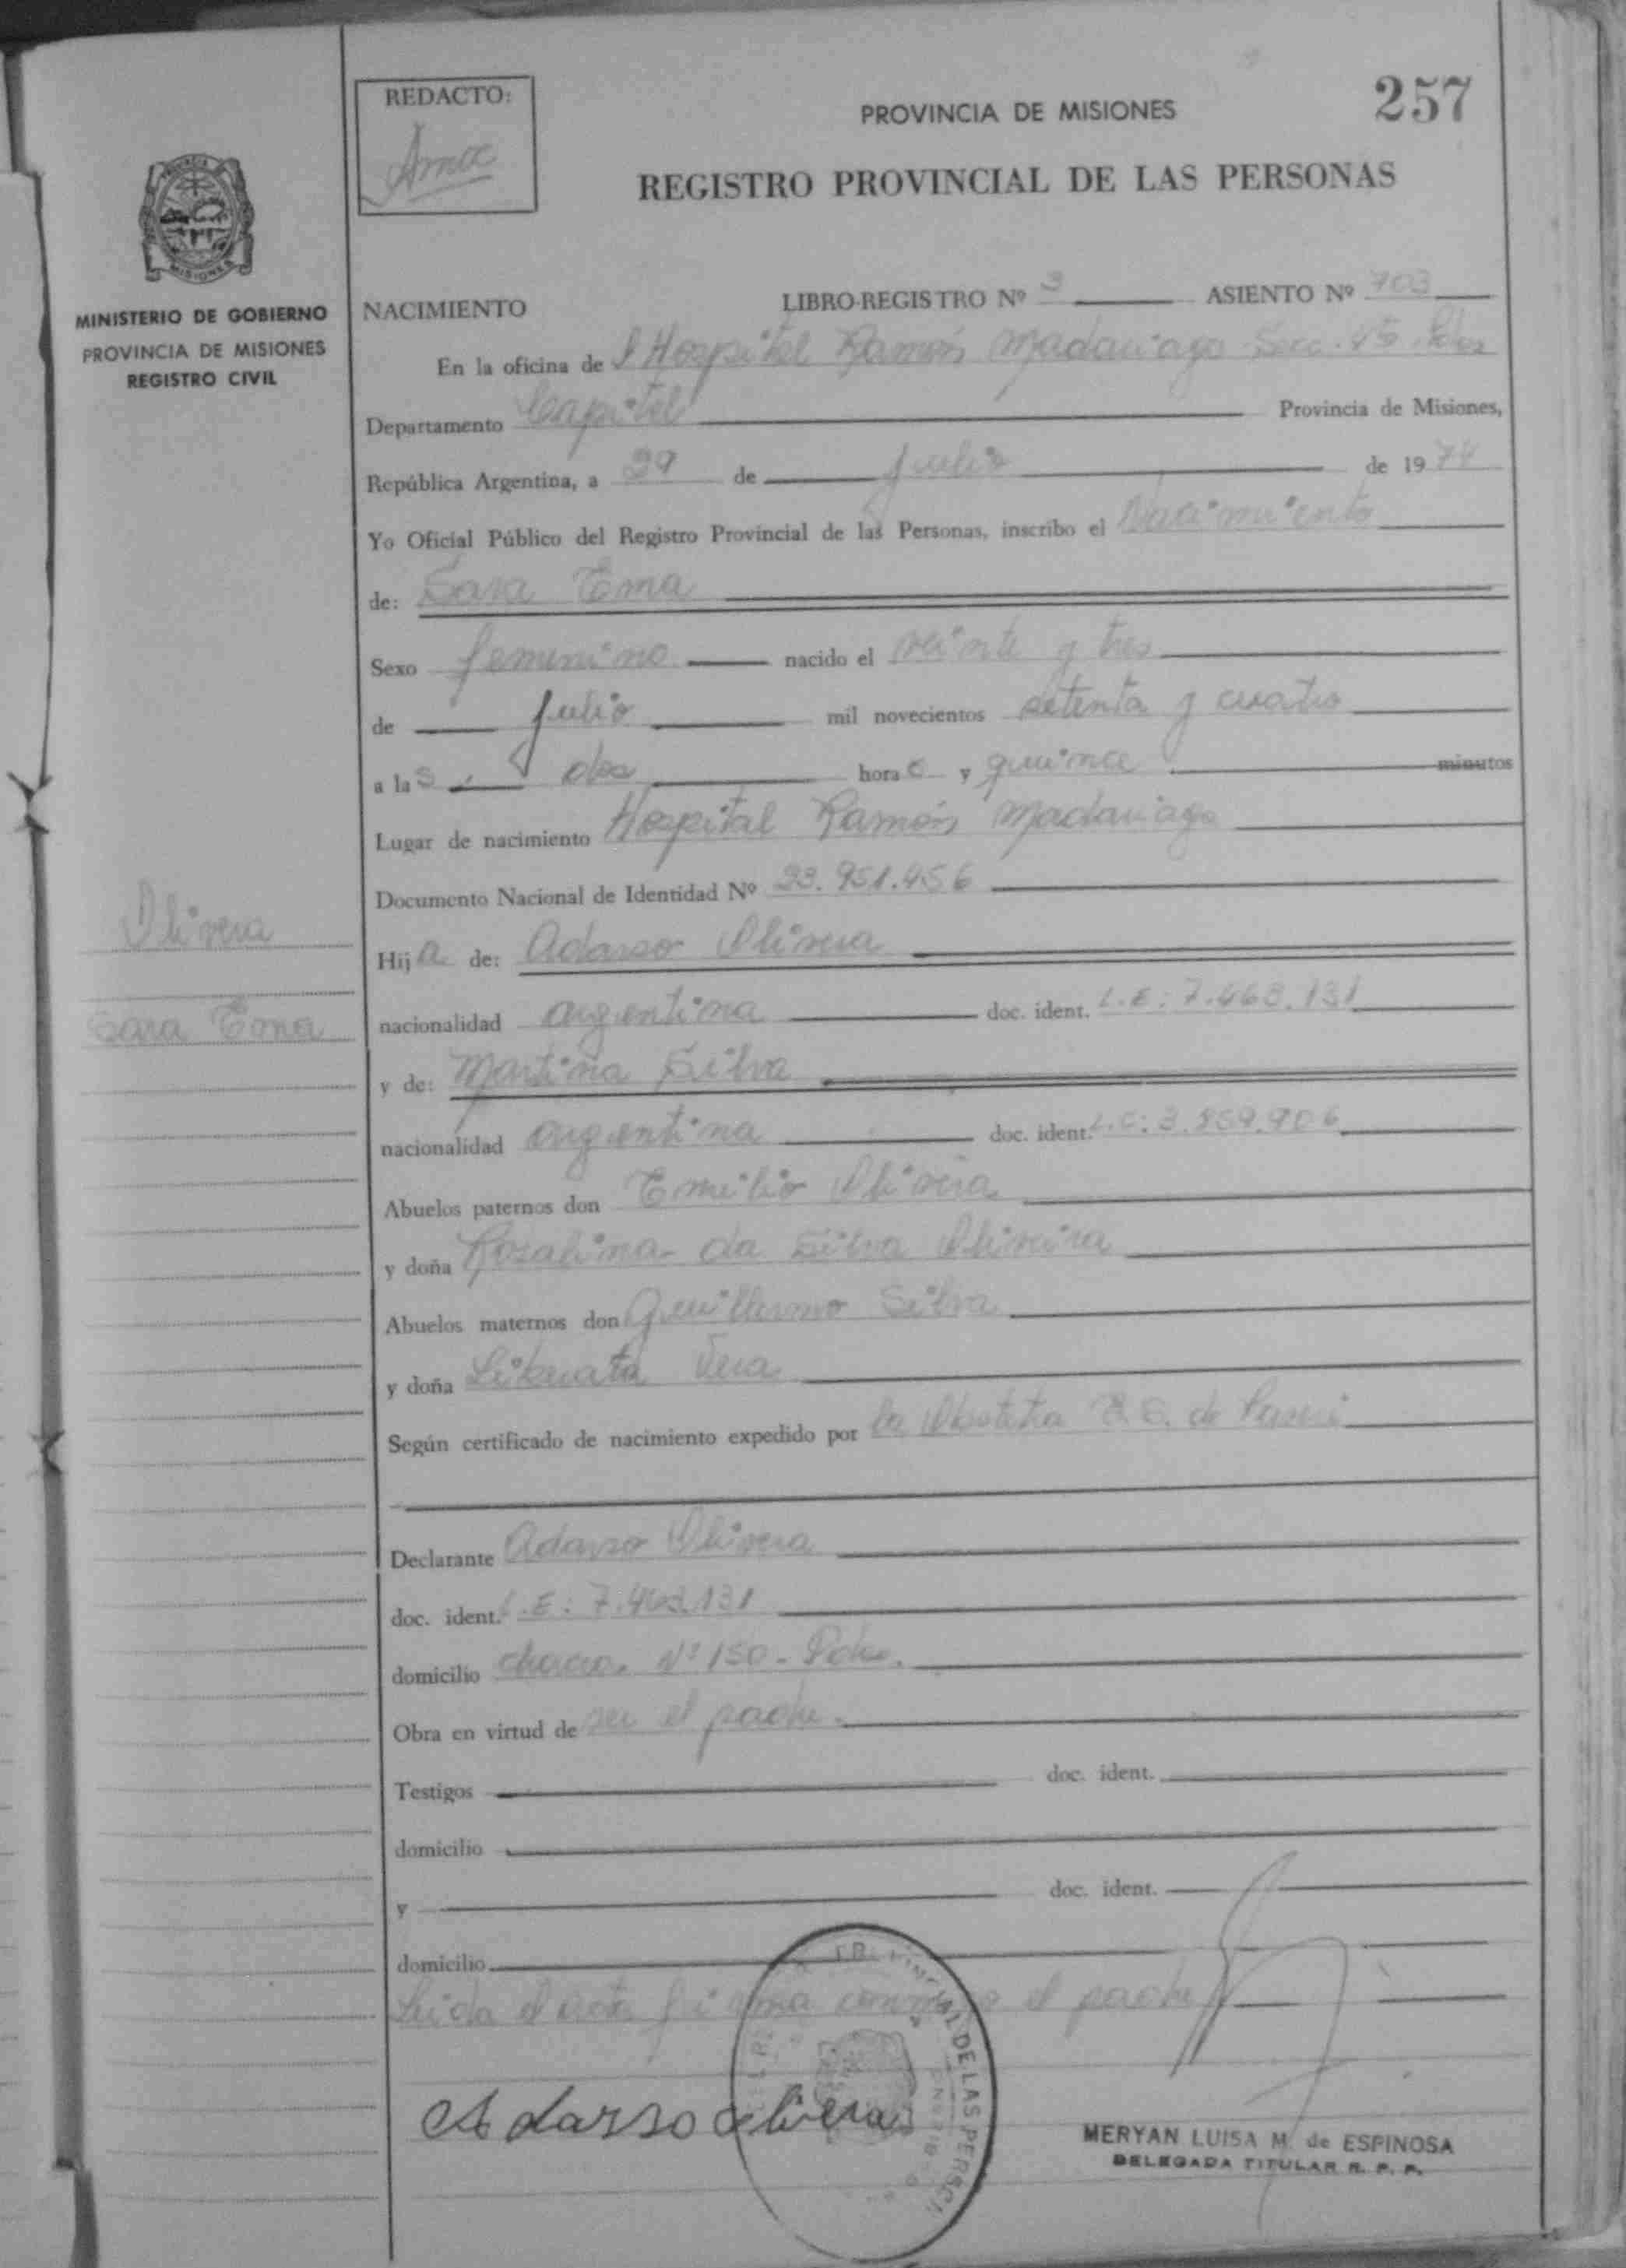 257
REDACTO:
PROVINCIA DE MISIONES
REGISTRO PROVINCIAL DE LAS PERSONAS
MISIONES
MINISTERIO DE GOBIERNO
PROVINCIA DE MISIONES
REGISTRO CIVIL
NACIMIENTO LIBRO-REGISTRO Nº 3 ASIENTO Nº 703
En la oficina de Hospital Ramón Madariaga Secc.
Departamento Capital Provincia de Misiones,
República Argentina, a 29 de Julio de 1974
Yo Oficial Público del Registro Provincial de las Personas, inscribo el Nacimiento
de: Sara Ema
Sexo femenino nacido el veinte y tres
de julio mil novecientos setenta y cuatro
a las dos hora y quince minutos
Lugar de nacimiento Hospital Ramón Madariaga
Documento Nacional de Identidad Nº 23.951.456
Olivera
Sara Ema
Hija de: Adarso Olivera
nacionalidad argentina doc. ident. L.E: 7.463.131
y de: Martina Silva
nacionalidad argentina doc. ident. L.C: 3.859.906
Abuelos paternos don Emilio Olivera
y doña Rosalina da Silva Oliveira
Abuelos maternos don Guillermo Silva
y doña Liberata Vera
Según certificado de nacimiento expedido por la Obstetra
Declarante Adarso Olivera
doc. ident. L.E: 7.463.131
domicilio chacra Nº 150 - Pdas.
Obra en virtud de ser el padre.
Testigos doc. ident.
domicilio
y doc. ident.
domicilio
Leida el acta firma conmigo el padre
Adarso olivera
DE LAS PERSO
MERYAN LUISA M. de ESPINOSA
DELEGADA TITULAR R. P. P.